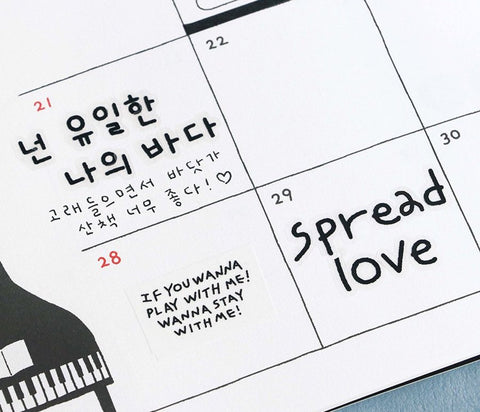 21
넌 유일한
나의 바다
고래들으면서 바닷가
산책 너무 좋다!♡
22
28
IF YOU WANNA
PLAY WITH ME!
WANNA STAY
WITH ME!
29
spread
love
30